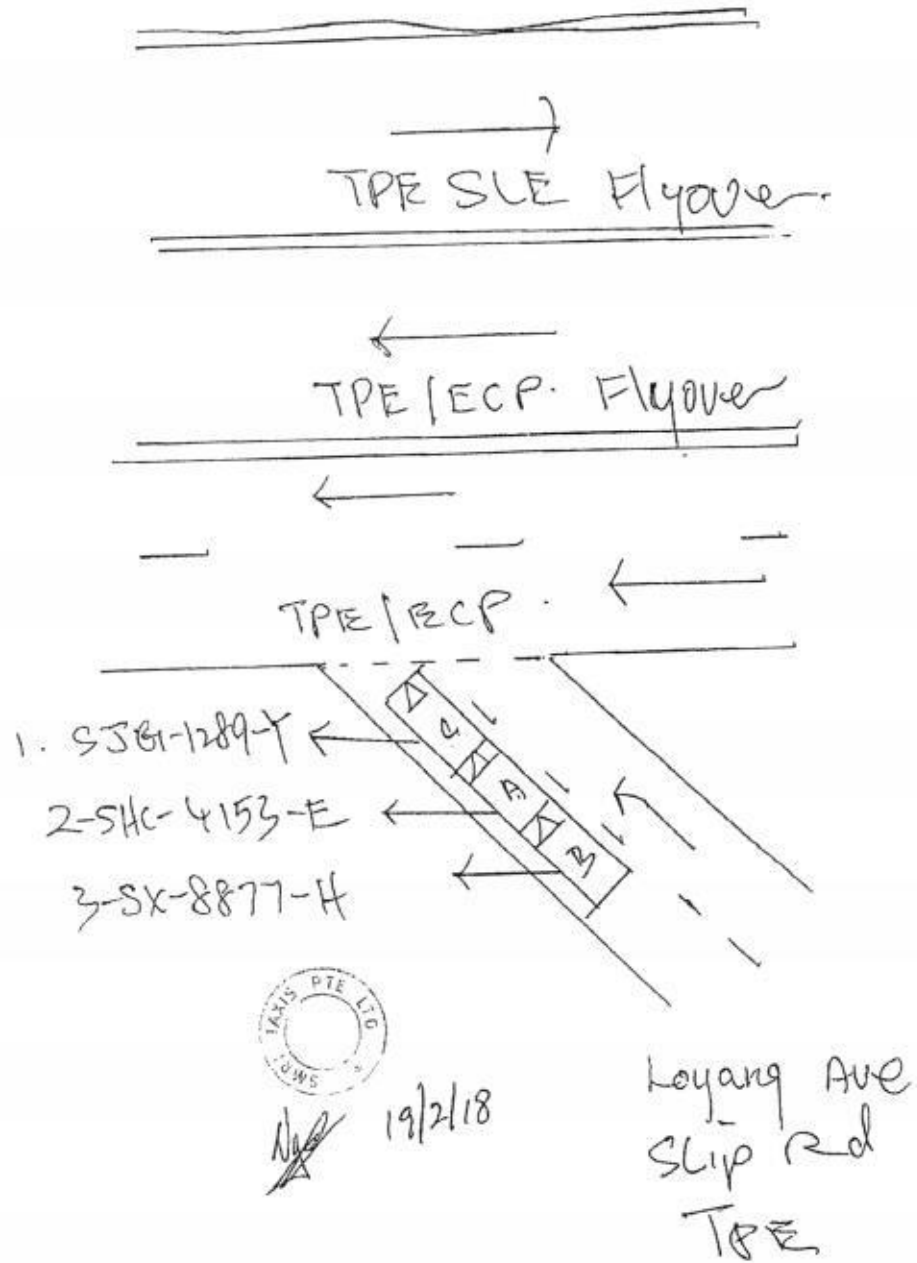 TPE SLE Flyover.
TPE/ECP. Flyover
TPE/ECP.
C
A
B
1. SJG-1289-Y
2-SHC-4153-E
3-SX-8877-H
SMRT TAXIS PTE LTD
19/2/18
Loyang Ave
Slip Rd
TPE